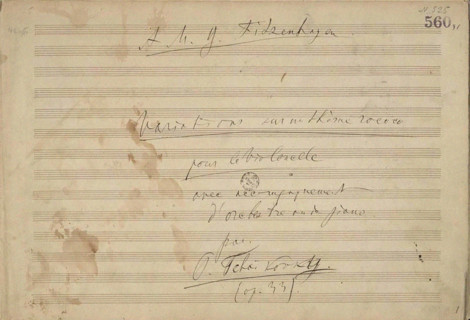 N. 525
560,,
A Mr. G. Fitzenhagen
Variations sur un thème rococo
pour le Violoncelle
avec accompagnement
d'orchestre ou de piano
par
P. Tschaïkovsky
(op. 33).
1